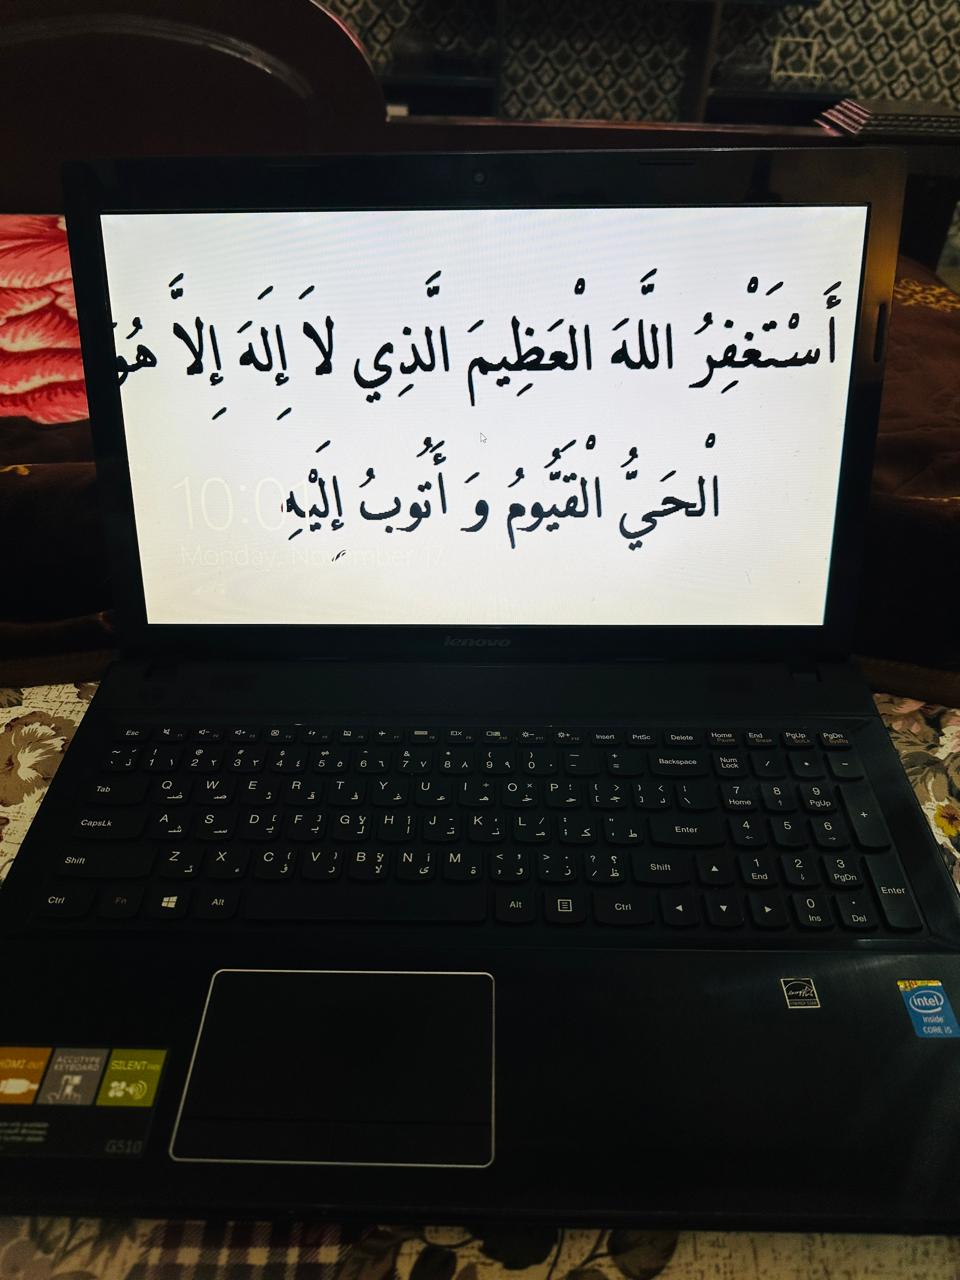 أَسْتَغْفِرُ اللَّهَ الْعَظِيمَ الَّذِي لَا إِلَهَ إِلَّا هُوَ
الْحَيُّ الْقَيُّومُ وَ أَتُوبُ إِلَيْهِ
10:01
Monday, November 17
lenovo
Esc Insert PrtSc Delete Home End PgUp PgDn
Backspace Num Lock 7 Home 8 9 PgUp
Tab Q W E R T Y U I O P
CapsLk A S D F G H J K L Enter 4 5 6
Shift Z X C V B N M Shift 1 End 2 3 PgDn Enter
Ctrl Fn Alt Alt Ctrl 0 Ins . Del
ENERGY STAR
intel inside CORE i5
HDMI OUT ACCUTYPE KEYBOARD SILENT
G510